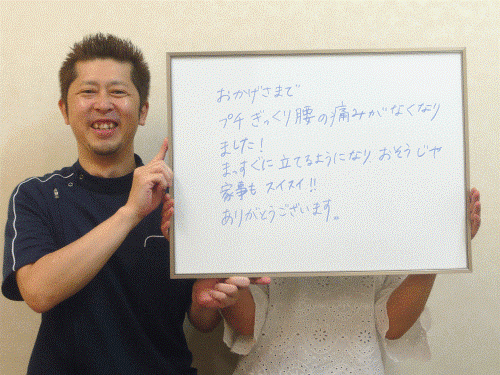 おかげさまで
プチ ぎっくり腰の痛みがなくなり
ました!
まっすぐに立てるようになり おそうじや
家事も スイスイ!!
ありがとうございます。